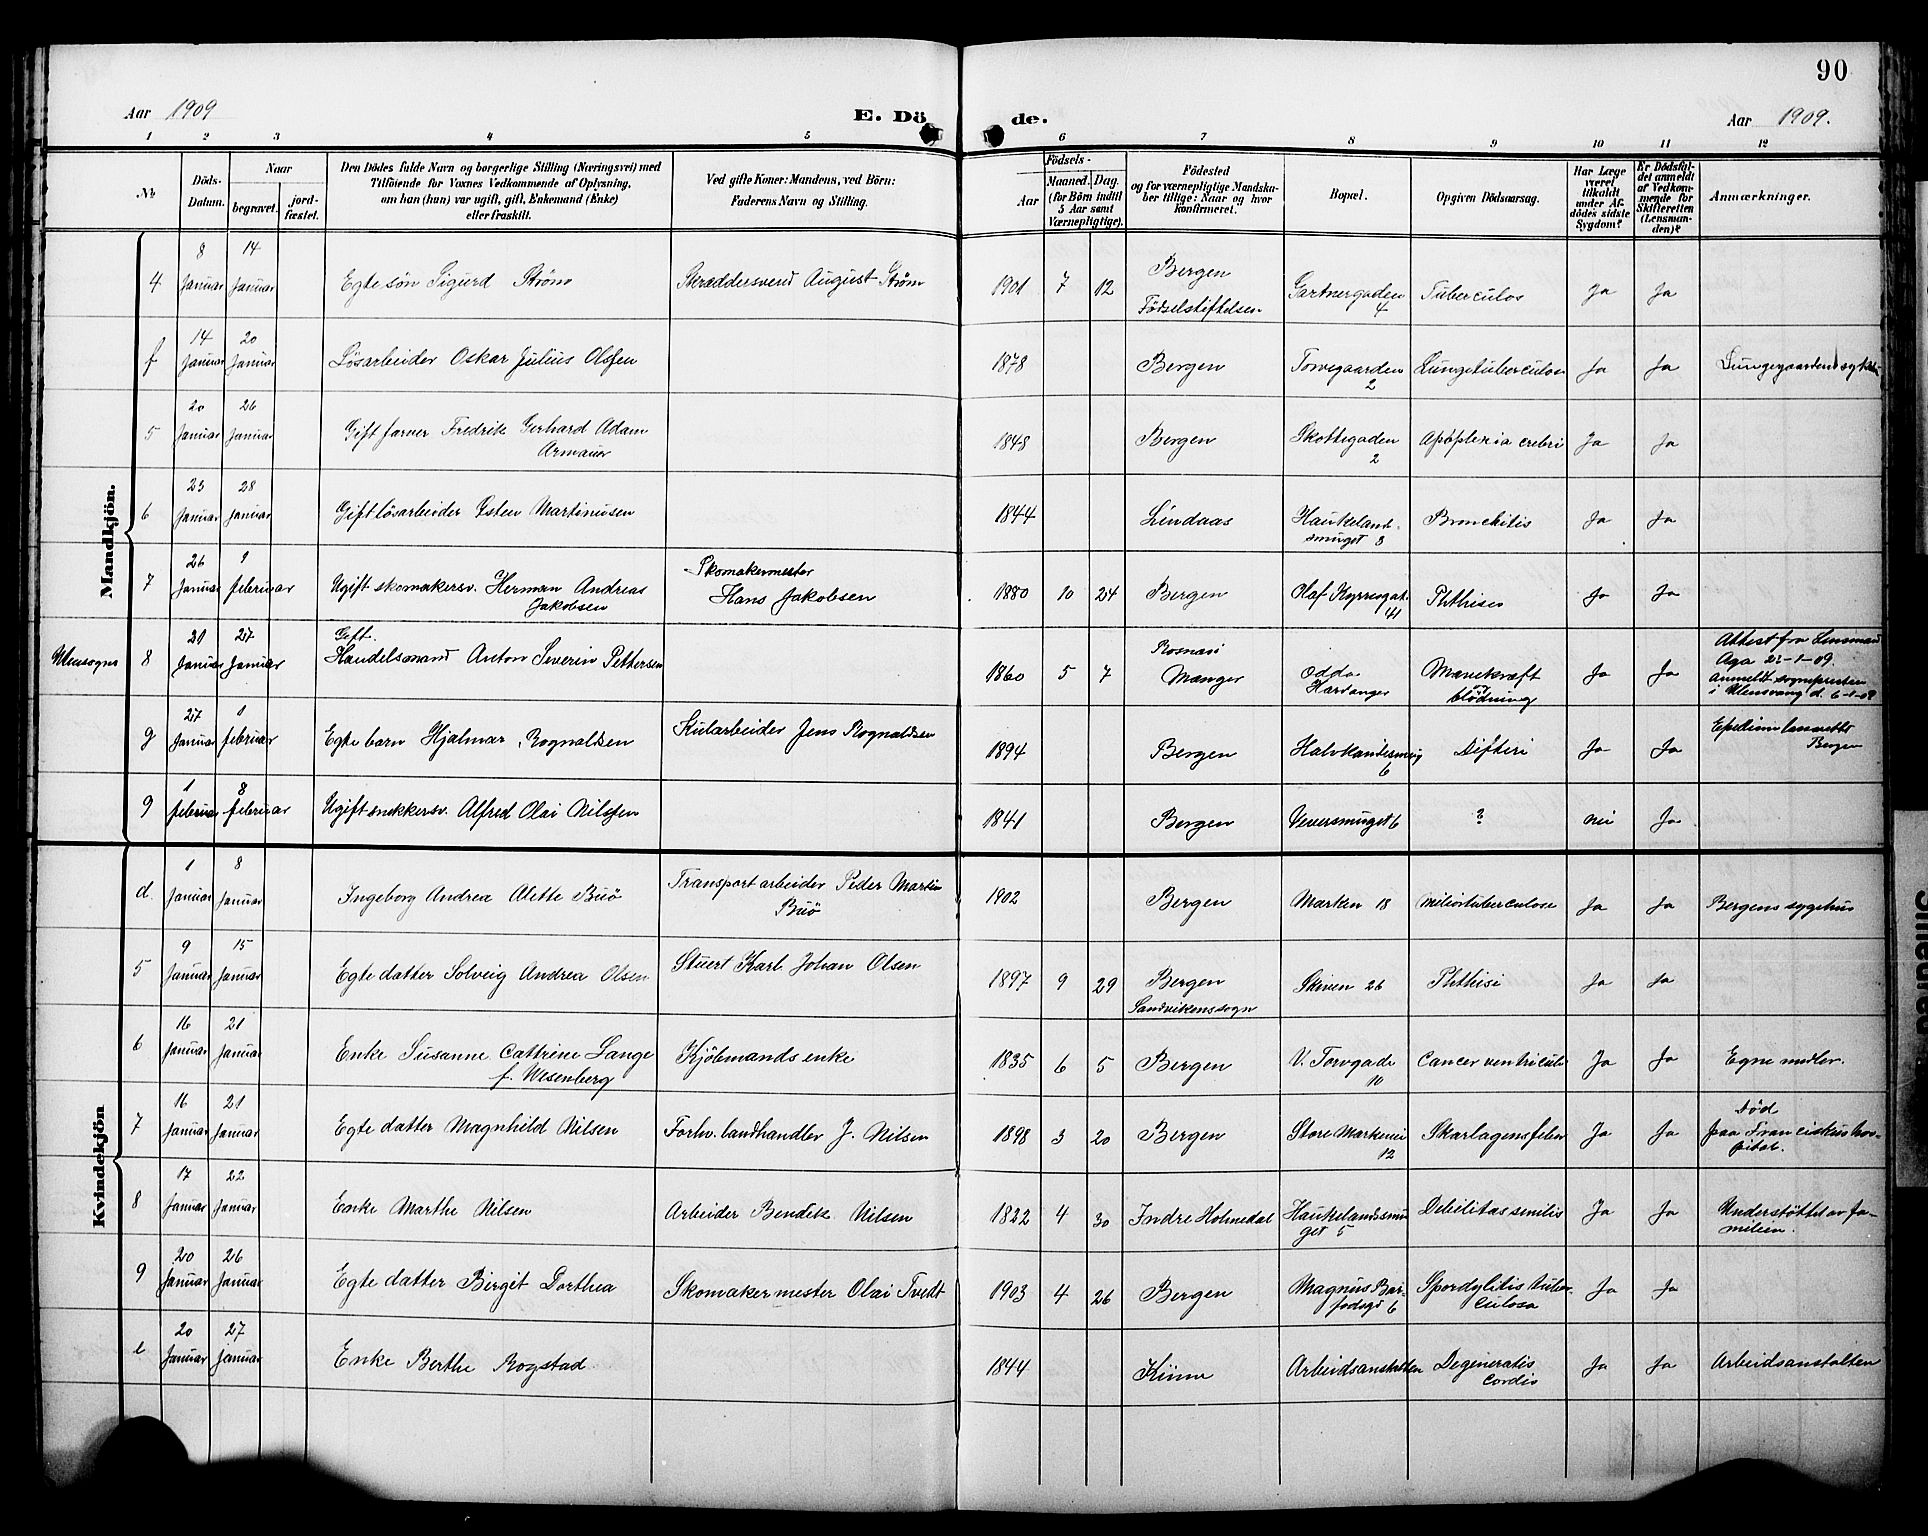 90
Aar 1909
E. Dö
de.
Aar 1909.
1 2 3 4 5 6 7 8 9 10 11 12
No
Döds-
Datum.
Naar
begravet.
jord-
fæstet.
Den Dödes fulde Navn og borgerlige Stilling (Næringsvei) med
Tilföiende for Voxnes Vedkommende af Oplysning,
om han (hun) var ugift, gift, Enkemand (Enke)
eller fraskilt.
Ved gifte Koner: Mandens, ved Börn:
Faderens Navn og Stilling.
Födsels-
Aar
Maaned. Dag.
(for Börn indtil
5 Aar samt
Værnepligtige).
Födested
og for værnepligtige Mandska-
ber tillige: Naar og hvor
konfirmeret.
Bopæl.
Opgiven Dödsaarsag.
Har Læge
været
tilkaldt
under Af-
dödes sidste
Sygdom?
Er Dödsfal-
det anmeldt
af Vedkom-
mende for
Skifteretten
(Lensman-
den)?
Anmærkninger.
Mandkjön.
8 14
4 Januar Januar Egte søn Sigurd Strøm Skræddersvend August Strøm 1901 7 12 Bergen Gartnergaden Tuberculos Ja Ja
Fødselstiftelsen 4
14 20
f Januar Januar Løsarbeider Oskar Julius Olsen 1878 Bergen Torvegaarden Lungetuberculose Ja Ja
2
20 26
5 Januar Januar Gift farver Fredrik Gerhard Adam 1848 Bergen Skottegaden Apoplexia crebri Ja Ja
Armauer 2
23 28
6 Januar Januar Gift løsarbeider Østen Martinusen 1844 Lindaas Haukeland- Bronchitis Ja Ja
smuget 3
26 1
7 Januar februar Ugift skomakersv. Herman Andreas Skomakermester 1880 10 24 Bergen Olaf Kyrresgat. Phthises Ja Ja
Jakobsen Hans Jakobsen 41
21 27 Gift.
8 Januar Januar Handelsmand Anton Severin Pettersen 1860 5 7 Manger Odda Mavekræft Ja Ja Attest fra Lensmand
Hardanger blødning Aga 21-1-09.
anmeldt sognepresten
27 1
9 Januar februar Egte barn Hjalmar Rognaldsen Kularbeider Jens Rognaldsen 1894 Bergen Halvkandesmug Difteri Ja Ja Epedemi lasarettet
6 Bergen
1 8
9 februar februar Ugift snekkersv. Alfred Olai Nilsen 1841 Bergen Veversmuget 6 ? nei Ja
Kvindekjön
1 8
d. Januar Januar Ingeborg Andrea Alette Buö Transportarbeider Peder Martin 1902 Bergen Marken 18 Miliortuberculose Ja Ja Bergens sygehus
Buö
9 15
5 Januar Januar Egte datter Solveig Andrea Olsen Stuert Karl Johan Olsen 1897 9 29 Bergen Skiven 26 Phthisi Ja Ja
Sandvikenssogn
16 21
6 Januar Januar Enke Susanne Cattrine Lange Kjøbmands enke 1835 6 5 Bergen V. Torvgade Cancer ventriculi Ja Ja Egne midler.
f. Wesenberg 10
16 21
7 Januar Januar Egte datter Magnhild Nilsen Forhv. landhandler J. Nilsen 1898 3 20 Bergen Store Markevei Skarlagensfeber Ja Ja Død
12 paa Franciskus hos-
pital.
17 22
8 Januar Januar Enke Marthe Nilsen Arbeider Bendik Nilsen 1822 4 30 Indre Holmedal Haukelandsmu Debilitas senilis Ja Ja Understøttet av fa-
get 5 milien.
20 26
9 Januar Januar Egte datter Birgit Dorthea Skomaker mester Olai Tvedt 1903 4 26 Bergen Magnus Bar- Spondylitis tuber- Ja Ja
fodsgd 6 culosa
20 27
e Januar januar Enke Berthe Rogstad. 1844 Kinn Arbeidsanstalten Degeneratis Ja Ja Arbeidsanstalten
Cordis